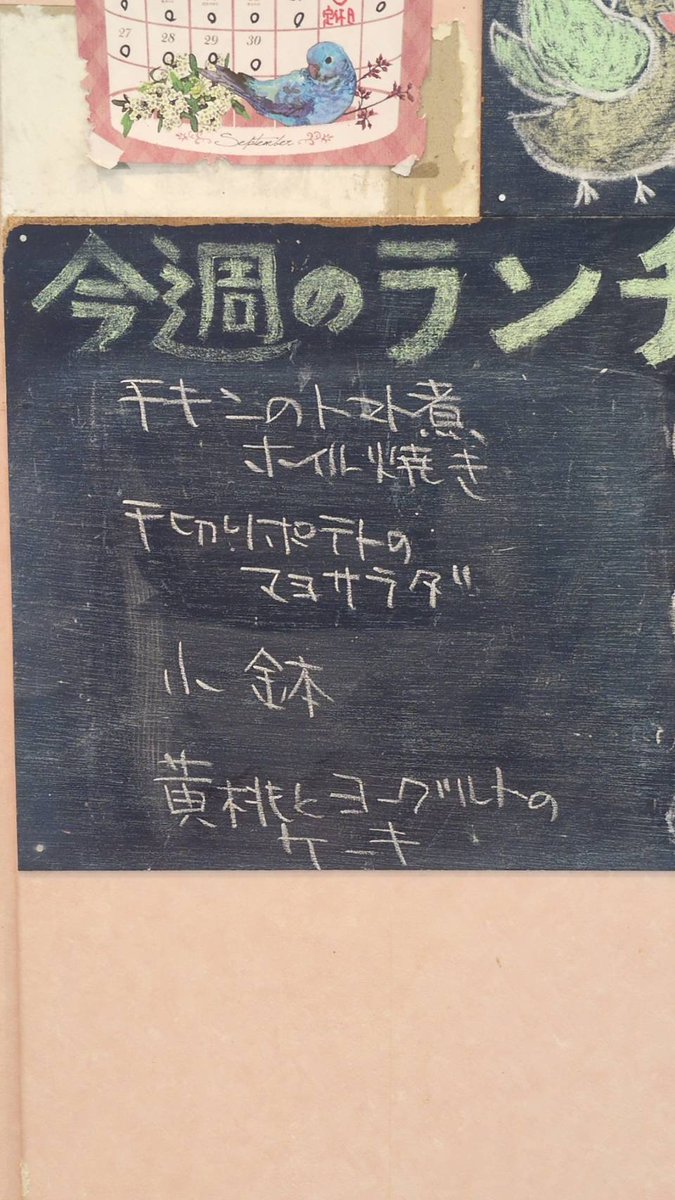 定休日
27 28 29 30
September
今週のランチ
チキンのトマト煮
ホイル焼き
千切りポテトの
マヨサラダ
小鉢
黄桃とヨーグルトの
ケーキ